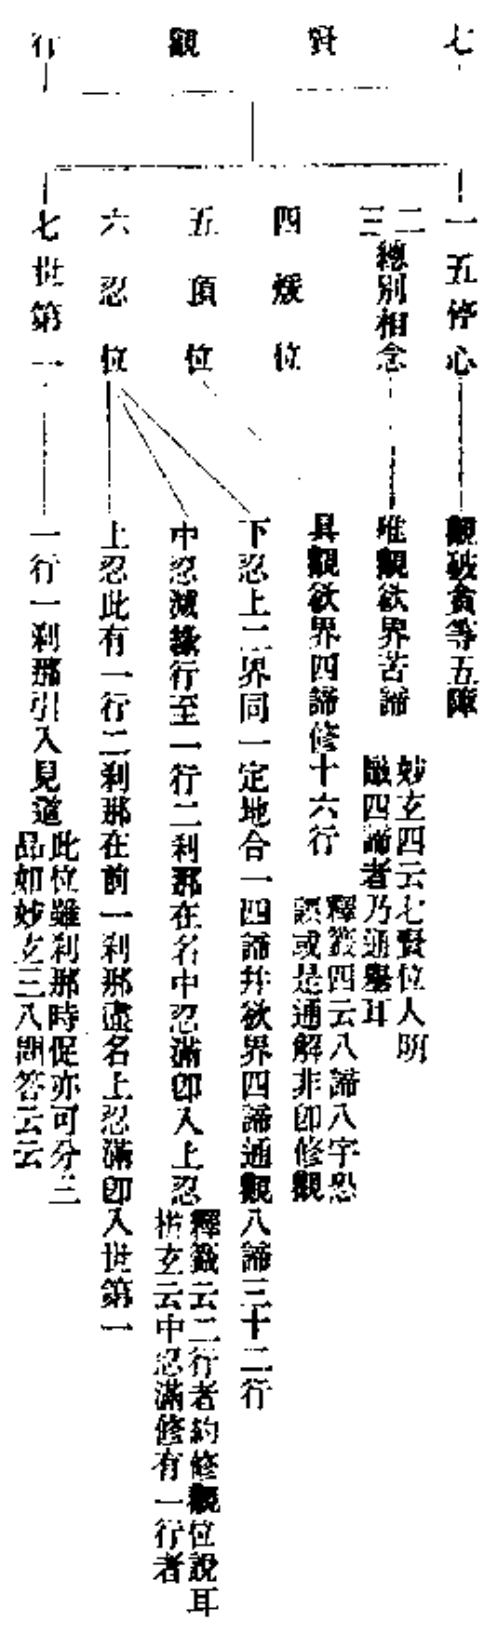 七賢觀行
一五停心
觀破貪等五障
二
三
總別相念
唯觀欲界苦諦
妙玄四云七賢位人明
四諦者乃通舉耳
四煖位
五頂位
具觀欲界四諦修十六行
釋籤四云八諦八字恐
誤或是通解非即修觀
六忍位
下忍上二界同一定地合一四諦并欲界四諦通觀八諦三十二行
中忍減緣行至一行二剎那在名中忍滿即入上忍
釋籤云二行者約修觀位說耳
玄云中忍滿修有一行者
上忍此有一行二剎那在前一剎那盡名上忍滿即入世第一
七世第一
一行一剎那引入見道
此位雖剎那時促亦可分三
品如妙玄三八問答云云